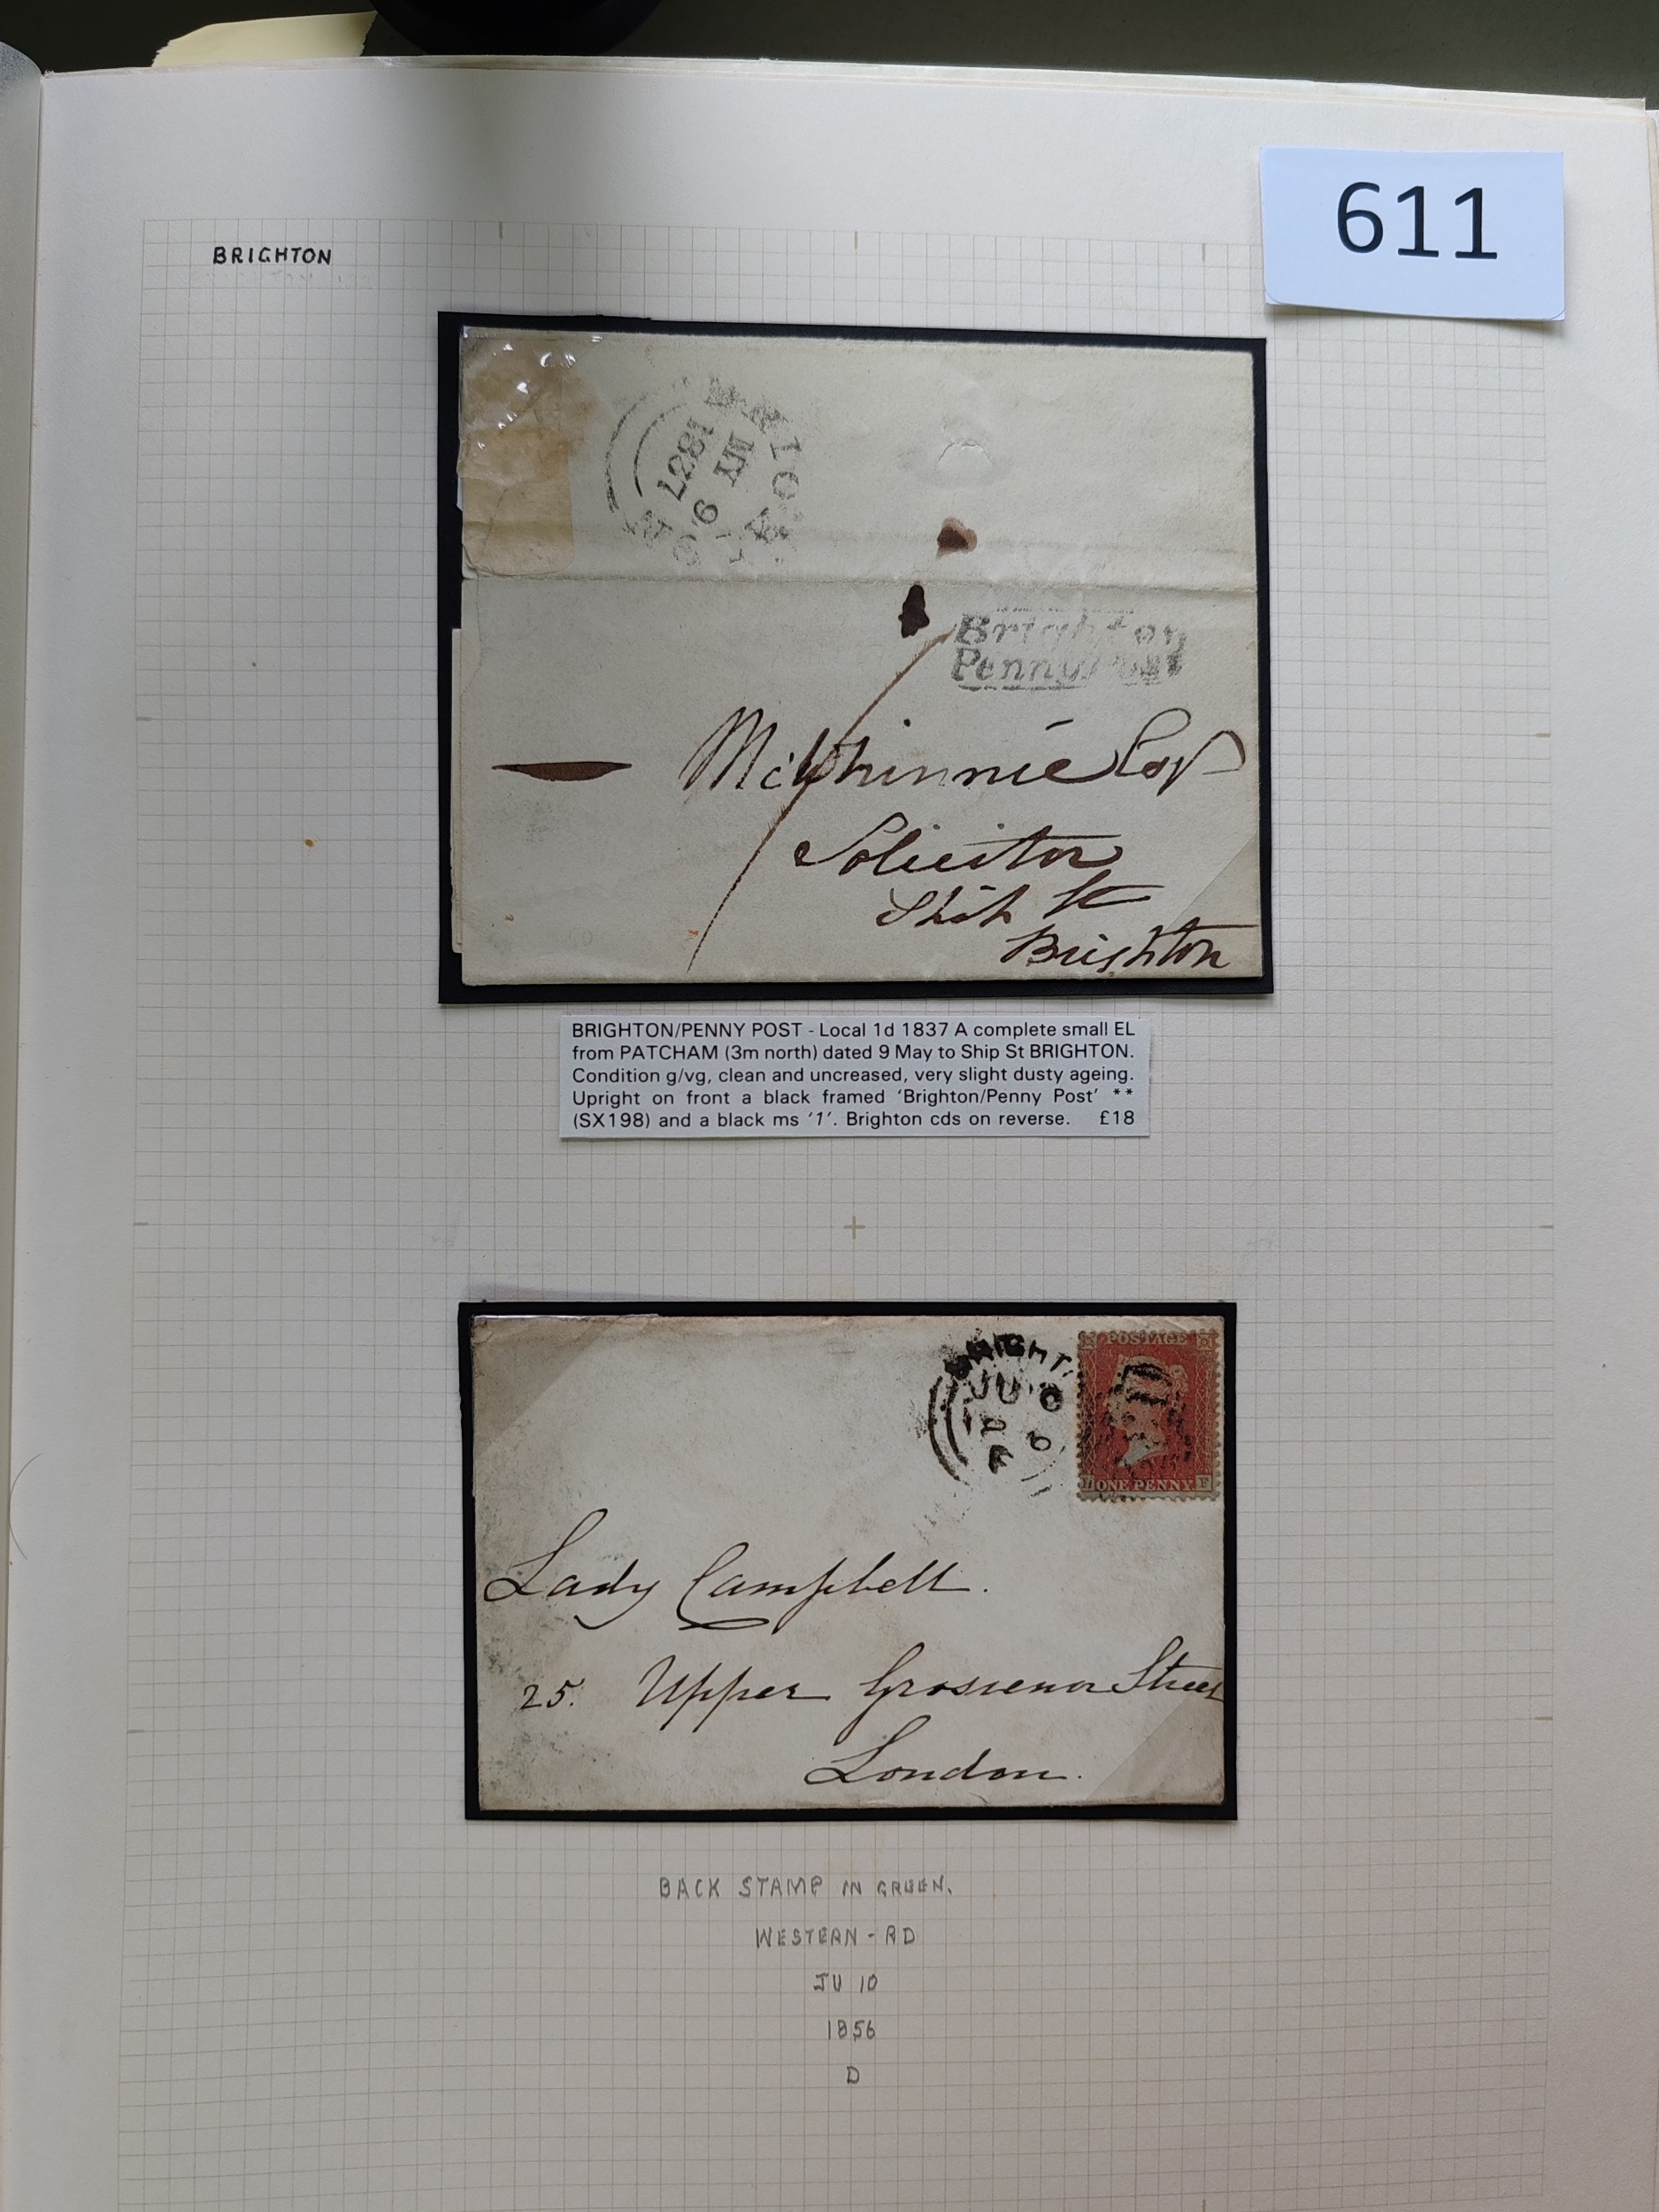 611
BRIGHTON
BRIGHTON
MY 9
1837
Brighton
Penny Post
1
McWhinnie Esqr
Solicitor
Ship St
Brighton
BRIGHTON/PENNY POST - Local 1d 1837 A complete small EL
from PATCHAM (3m north) dated 9 May to Ship St BRIGHTON.
Condition g/vg, clean and uncreased, very slight dusty ageing.
Upright on front a black framed ‘Brighton/Penny Post’ **
(SX198) and a black ms ‘1’. Brighton cds on reverse. £18
BRIGHT
JU
A
POSTAGE
ONE PENNY F
Lady Campbell.
25. Upper Grosvenor Street
London.
BACK STAMP IN GREEN.
WESTERN - RD
JU 10
1856
D